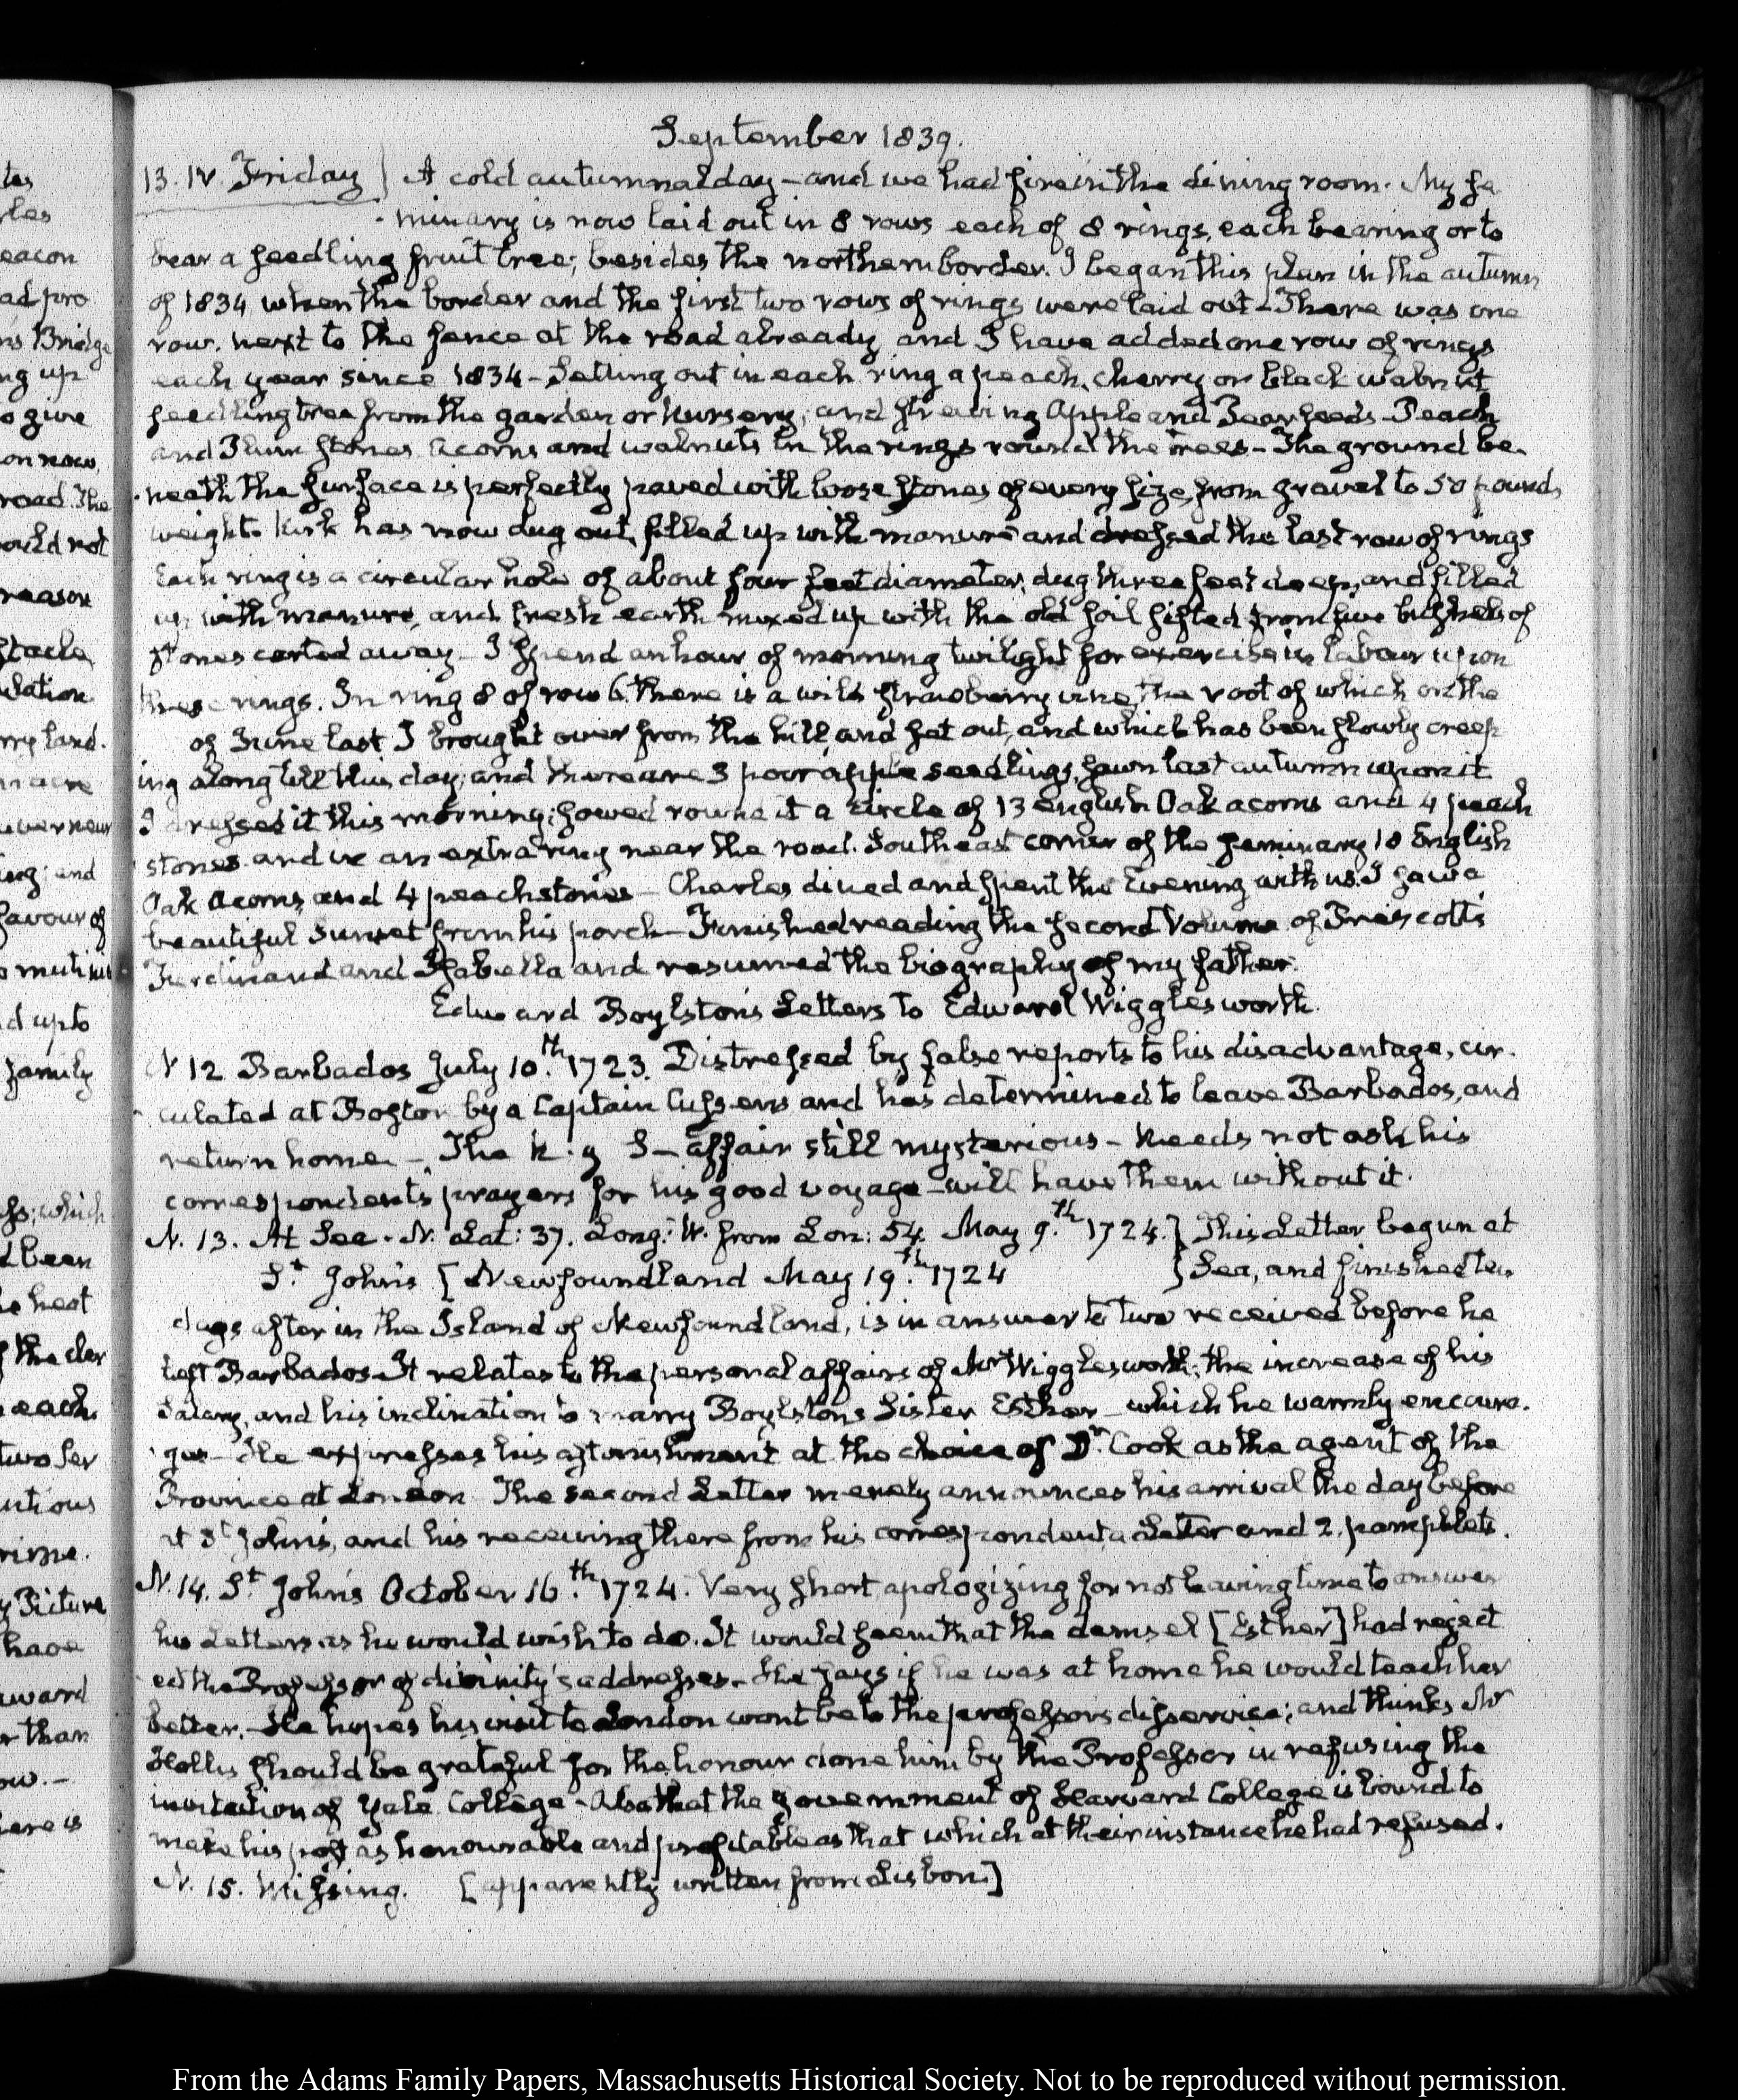 September 1839.
13. IV. Friday} A cold autumnal day – and we had fire in the dining room. My se
minary is now laid out in 8 rows each of 8 rings, each bearing or to
bear a seedling fruit tree; besides the northern border. I began this plan in the autumn
of 1834 when the border and the first two rows of rings were laid out – There was one
row, next to the fence at the road already and I have added one row of rings
each year since 1834 – Setting out in each ring a peach, cherry or black walnut
seedling tree from the garden or Nursery; and strewing Apple and Pear seeds – Peach
and Plum stones acorns and walnuts in the rings round the trees – The ground be-
neath the surface is perfectly paved with loose stones of every size from gravel to 50 pounds
weight. Kirk has now dug out, filled up with manure and dressed the last row of rings
Each ring is a circular hole of about four feet diameter, dug three feet deep, and filled
up with manure, and fresh earth mixed up with the old soil sifted from five bushels of
stones carted away – I spend an hour of morning twilight for exercise in labour upon
these rings. In ring 8 of row 6. there is a wild strawberry vine, the root of which on the
of June last I brought over from the hill and set out, and which has been slowly creep
ing along till this day; and there are 3 poor apple seedlings, sown last autumn upon it
I dressed it this morning; sowed round it a circle of 13 english Oak acorns and 4 peach
stones and in an extra ring near the road. South east corner of the seminary 18 English
Oak Acorns and 4 peach stones – Charles dined and spent the Evening with us. I saw a
beautiful Sunset from his porch – Finished reading the second Volume of Prescott's
Ferdinand and Isabella and resumed the biography of my father.
Edward Boylston's Letters to Edward Wigglesworth.
N 12 Barbados July 10.th 1723. Distressed by false reports to his disadvantage, cir-
culated at Boston by a Captain Cussens and has determined to leave Barbados, and
return home – The K. g S – affair still mysterious – Needs not ask his
correspondent's prayers for his good voyage – will have them without it.
N. 13. At Sea – N. Lat: 37. Long: W. from Lon: 54. May 9.th 1724.} This Letter begun at
St. John's [Newfoundland May 19.th 1724 } Sea, and finished ten
days after in the Island of Newfoundland, is in answer to two received before he
left Barbados – It relates to the personal affairs of Mr Wigglesworth; the increase of his
Salary, and his inclination to marry Boylston's Sister Esther – which he warmly encoura-
ges – He expresses his astonishment at the choice of Dr. Cook as the agent of the
Province at London The second Letter merely announces his arrival the day before
at St John's, and his receiving there from his correspondent a Letter and 2. pamphlets.
N. 14. St John's October 16.th 1724. Very short, apologizing for not having time to answer
his Letters as he would wish to do. It would seem that the damsel [Esther] had reject
ed the Professor of divinity's addresses – He says if he was at home he would teach her
better. – He hopes his visit to London wont be to the professors disservice; and thinks Mr
Hollis should be grateful for the honour done him by the Professor in refusing the
invitation of Yale College – Also that the government of Harvard College is bound to
make his post as honourable and profitable as that which at their instance he had refused.
N. 15. Missing. [apparently written from Lisbon]
From the Adams Family Papers, Massachusetts Historical Society. Not to be reproduced without permission.